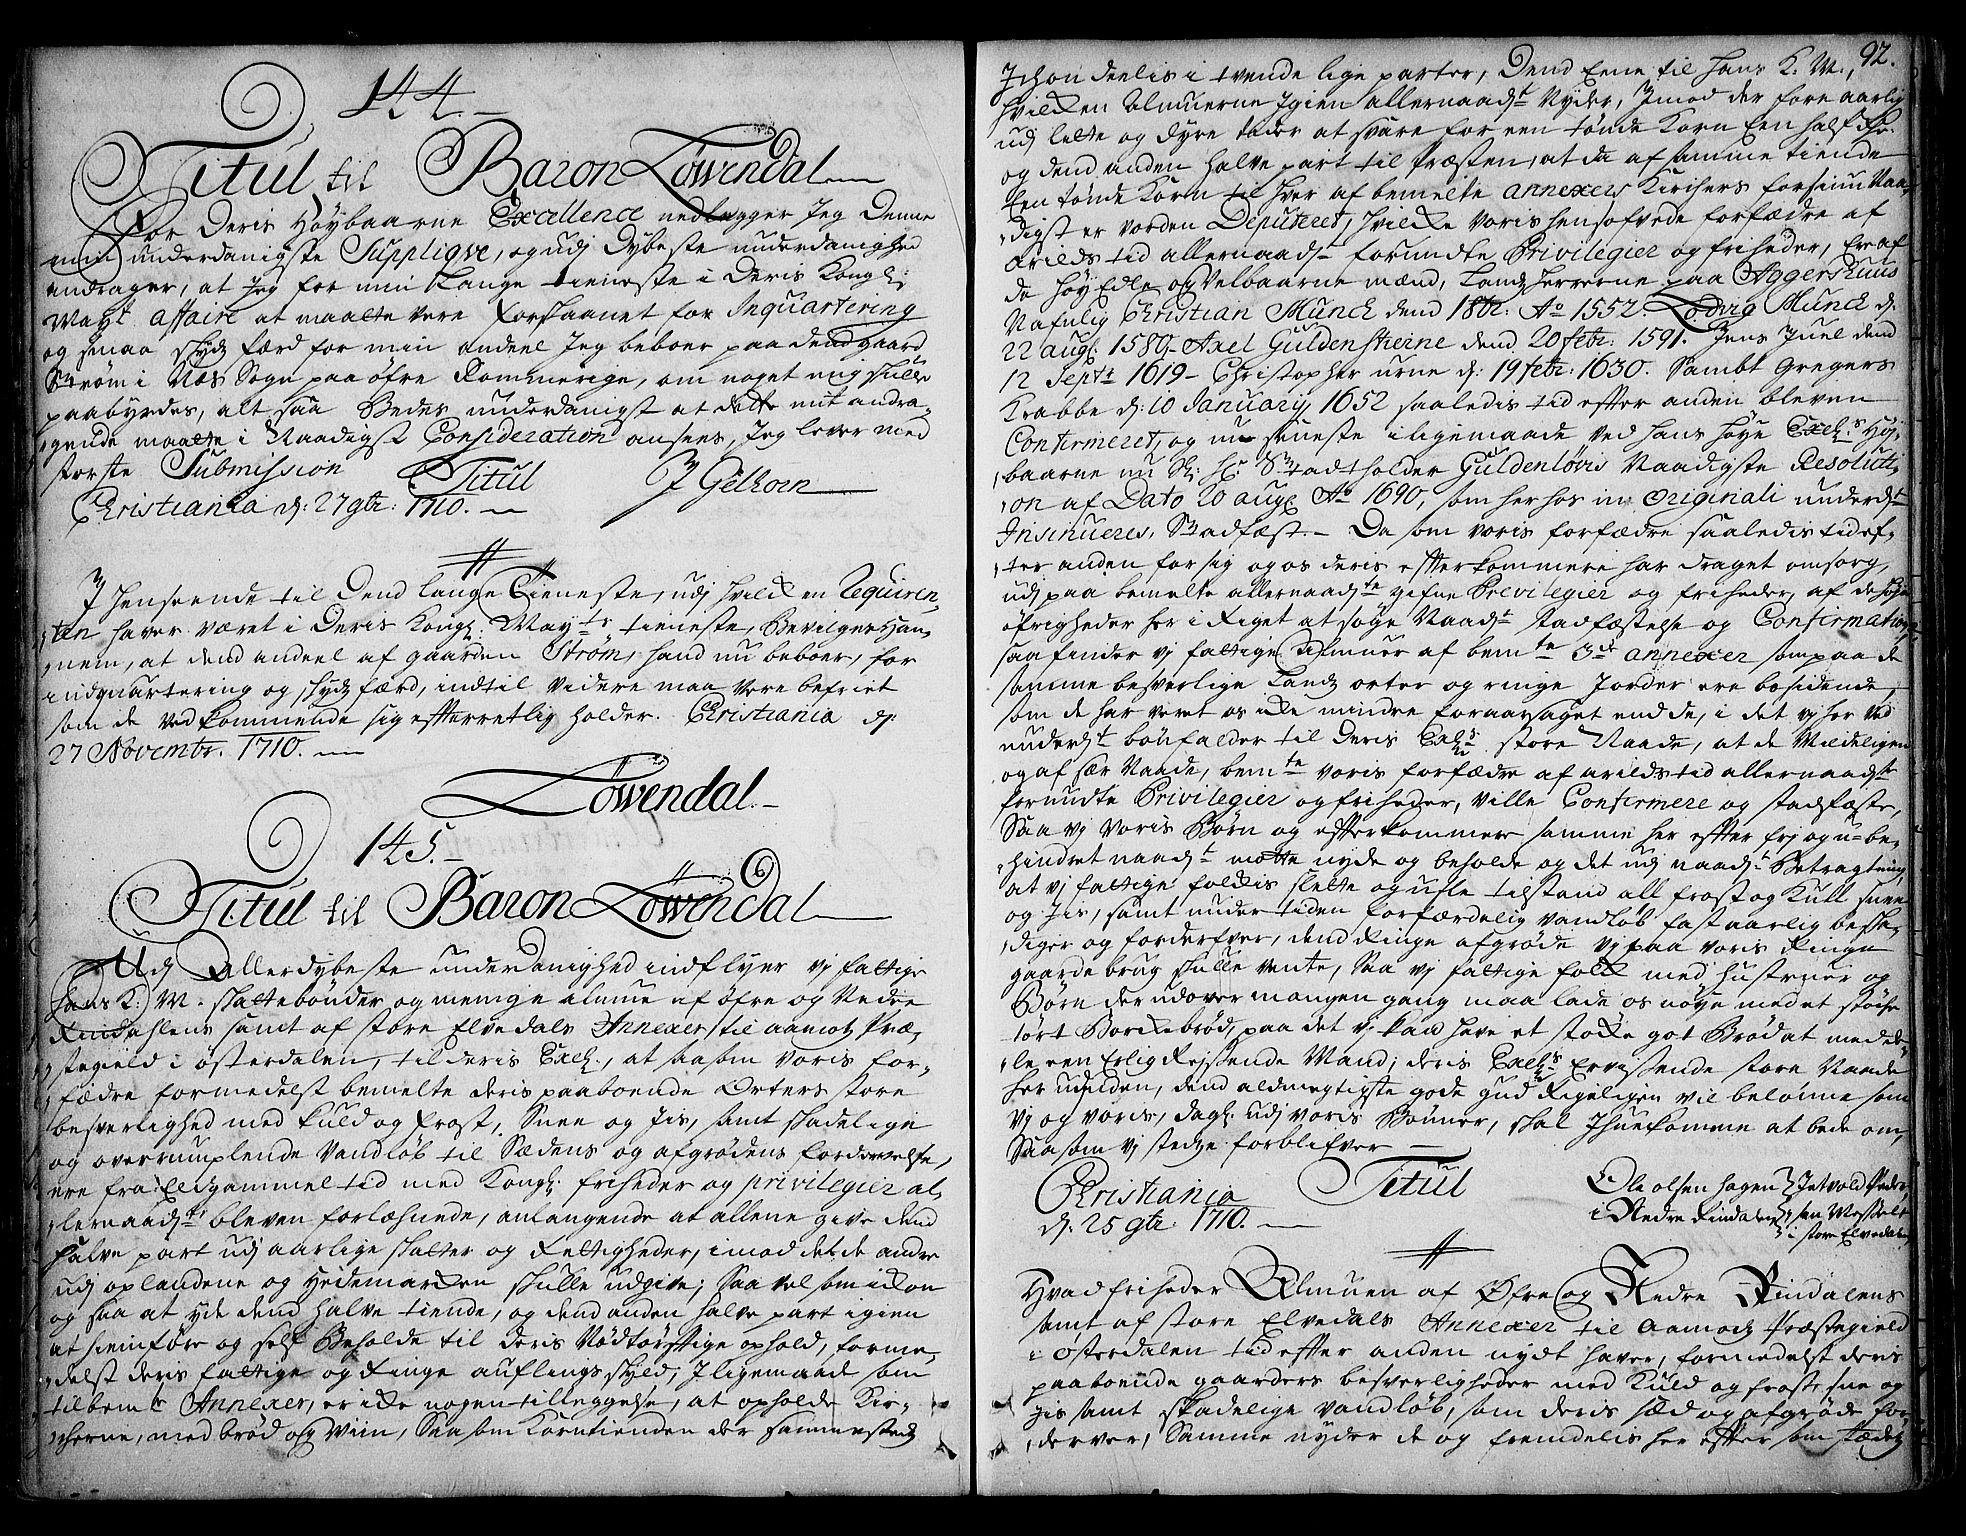 144.
Titul til Baron Löwendal
For Deris Höybaarne Excellence nedlegger Jeg Denne
min underdanigste Supplique, og udj dybeste underdanighed
andrager, at Jeg for min Lange tieneste i Deris Kongl:
Mayt affaire at maatte vere forskaanet for Inquartering
og smaa skydsfærd for min andeel Jeg beboer paa dend gaard
Ström i Næs Sogn paa öfre Rommerige, om noget mig skulle
paabyrdes, alt saa Bedes underdanigst at dette mit andra-
gende maatte i Naadigst Consideration ansees, Jeg lever med
störste Submission Titul J Gelkorn
Christiania d: 27 9br: 1710.
I henseende til Dend lange Tieneste, udj hvilken Requiren-
ten haver været i Deris Kongl: Mayts tieneste, Bevilges Han-
nem, at dend andeel af gaarden Ström, hand nu beboer, for
indquartering og skydsfærd, indtil videre maa vere befriet
som de vedkommende sig efterretlig holder. Christiania d:
27 Novembr. 1710.
Löwendal.
145.
Titul til Baron Löwendal
Udj Allerdybeste underdanighed indflyer vj fattige
hans K: M. skattebönder og menige almue af öfre og Nedre
Rindahlens samt af store Elvedals Annexer til aamotz Præ-
stegield i österdalen, til deris Excel:, at saasom voris for-
fædre formedelst bemelte deris paaboende Orters store
besverlighed med kuld og frost, Snee og Jis, samt skadelige
og overrumplende Vandlöb til Sædens og afgrödens fordervelse,
ere fra Eldgammel tid med Kongl: friheder og privilegier al-
lernaadst bleven forlæhnede, anlangende at allene give dend
halve part udj aarlige skatter og Rettigheder, imod det de andre
udj oplandene og Hedemarken skulle udgive; Saa vel som icke
og saa at yde dend halve tiende, og dend anden halve part igien
at hiemföre og self Beholde til deris Nödtörftige ophold, forme-
delst deris fattige og Ringe auflings skyld, I ligemaade som
til bemte Annexer, er icke nogen tilleggelse, at opholde Kir-
cherne, med bröd og Viin, Saa som Korntienden der sammestedz
92.
Ichon deelis i tvende lige parter, Dend Eene til hans K. M.,
hvilken Almuerne Igien allernaadst Nyder, Imod der fore aarlig
udj lette og dyre tider at svare for een tönde Korn Een half
og dend anden halve part til Præsten, at da af samme tiende
Een tönde Korn til hver af bemelte annexers Kirchers forsiun Naa-
digst er vorden Deputeret, hvilke voris hensofvede forfædre af
Arilds tid allernaadst forundte Privilegier og friheder, Er af
de höyEdle og Velbaarne mænd, Landsherrerne paa Aggershuus
Nafnlig Christian Munck dend 18 Ao 1552. Lodvig Munck d.
22 augl 1589 - Axel Guldenstierne dend 20 febr: 1591. Jens Juel dend
12 Septr 1619 - Christopher urne d: 19 febr: 1630. Sambt Gregers
Krabbe d: 10 January 1652 saaledis tid efter anden bleven
Confirmeret, og nu seneste i ligemaade ved hans höye Excels Höy-
baarne nu Sl: Hr Stadtholder Guldenlövis Naadigste Resoluti-
on af Dato 20 augl Ao 1690, som herhos in Originali underdt
Insinueres, Stadfæst. - Da som voris forfædre saaledis tid ef-
ter anden for sig og os deris efterkommere har draget omsorg,
udj paa bemelte allernaadste gifne Previlegier og friheder, af de höye
öfrigheder her i Riget at söge Naadst stadfæstelse og Confirmation
saa finder vj fattige Almuer af bemte 3de annexer som paa de
samme besverlige Landz orter og ringe Jorder ere bosidende
som de har veret os icke mindre foraarsaget end de, i det vj her ved
underdt bönfalder til Deris Excels store Naade, at de Mildeligen
og af sær Naade, bemte voris forfædre af arilds tid allernaadst
forundte Privilegier og friheder, ville Confirmere og stadfæste,
Saa vj voris Börn og efterkommere samme her efter frj og u-be-
hindret naadst motte nyde og beholde og det udj naadst Betragtning
at vj fattige folkis slette og usle tilstand all frost og Kull snee
og Jis, samt under tiden forfærdelig vandlöb fast aarlig beska-
diger og forderfver, dend Ringe afgröde vj paa voris Ringe
gaarde brug skulle vente, Saa vj fattige folk med Hustruer og
Börn der udover mangen gang maa lade os nöye med et stöcke
tört Barkebröd, paa det vj kan have et stöcke got Bröd at meddee-
le een Erlig Reysende Mand; deris Excels Ervissende store Naade
her udinden, dend aldmegtigste gode gud Rigeligen vil belönne som
vj og voris, dagl. udj voris Bönner, skal Ihuekomme at bede om,
Saasom vj stedze forblifver
Christiania Titul
d: 25 9br: 1710.
Ole olsen Hagen i Nedre Rindalen
Jetvold Peder-
sen Messelt
i store Elvedalen
Hvad friheder Almuen af Öfre og Nedre Rindalens
samt af store Elvedals Annexer til Aamotz Præstegield
i Österdalen tid efter anden nydt haver, formedelst deris
paaboende gaarders besverligheder med Kuld og frost, sne og
Jis samt skadelige vandlöb, som deris sæd og afgröde for-
derver, Samme nyder de og fremdelis her efter som stædz